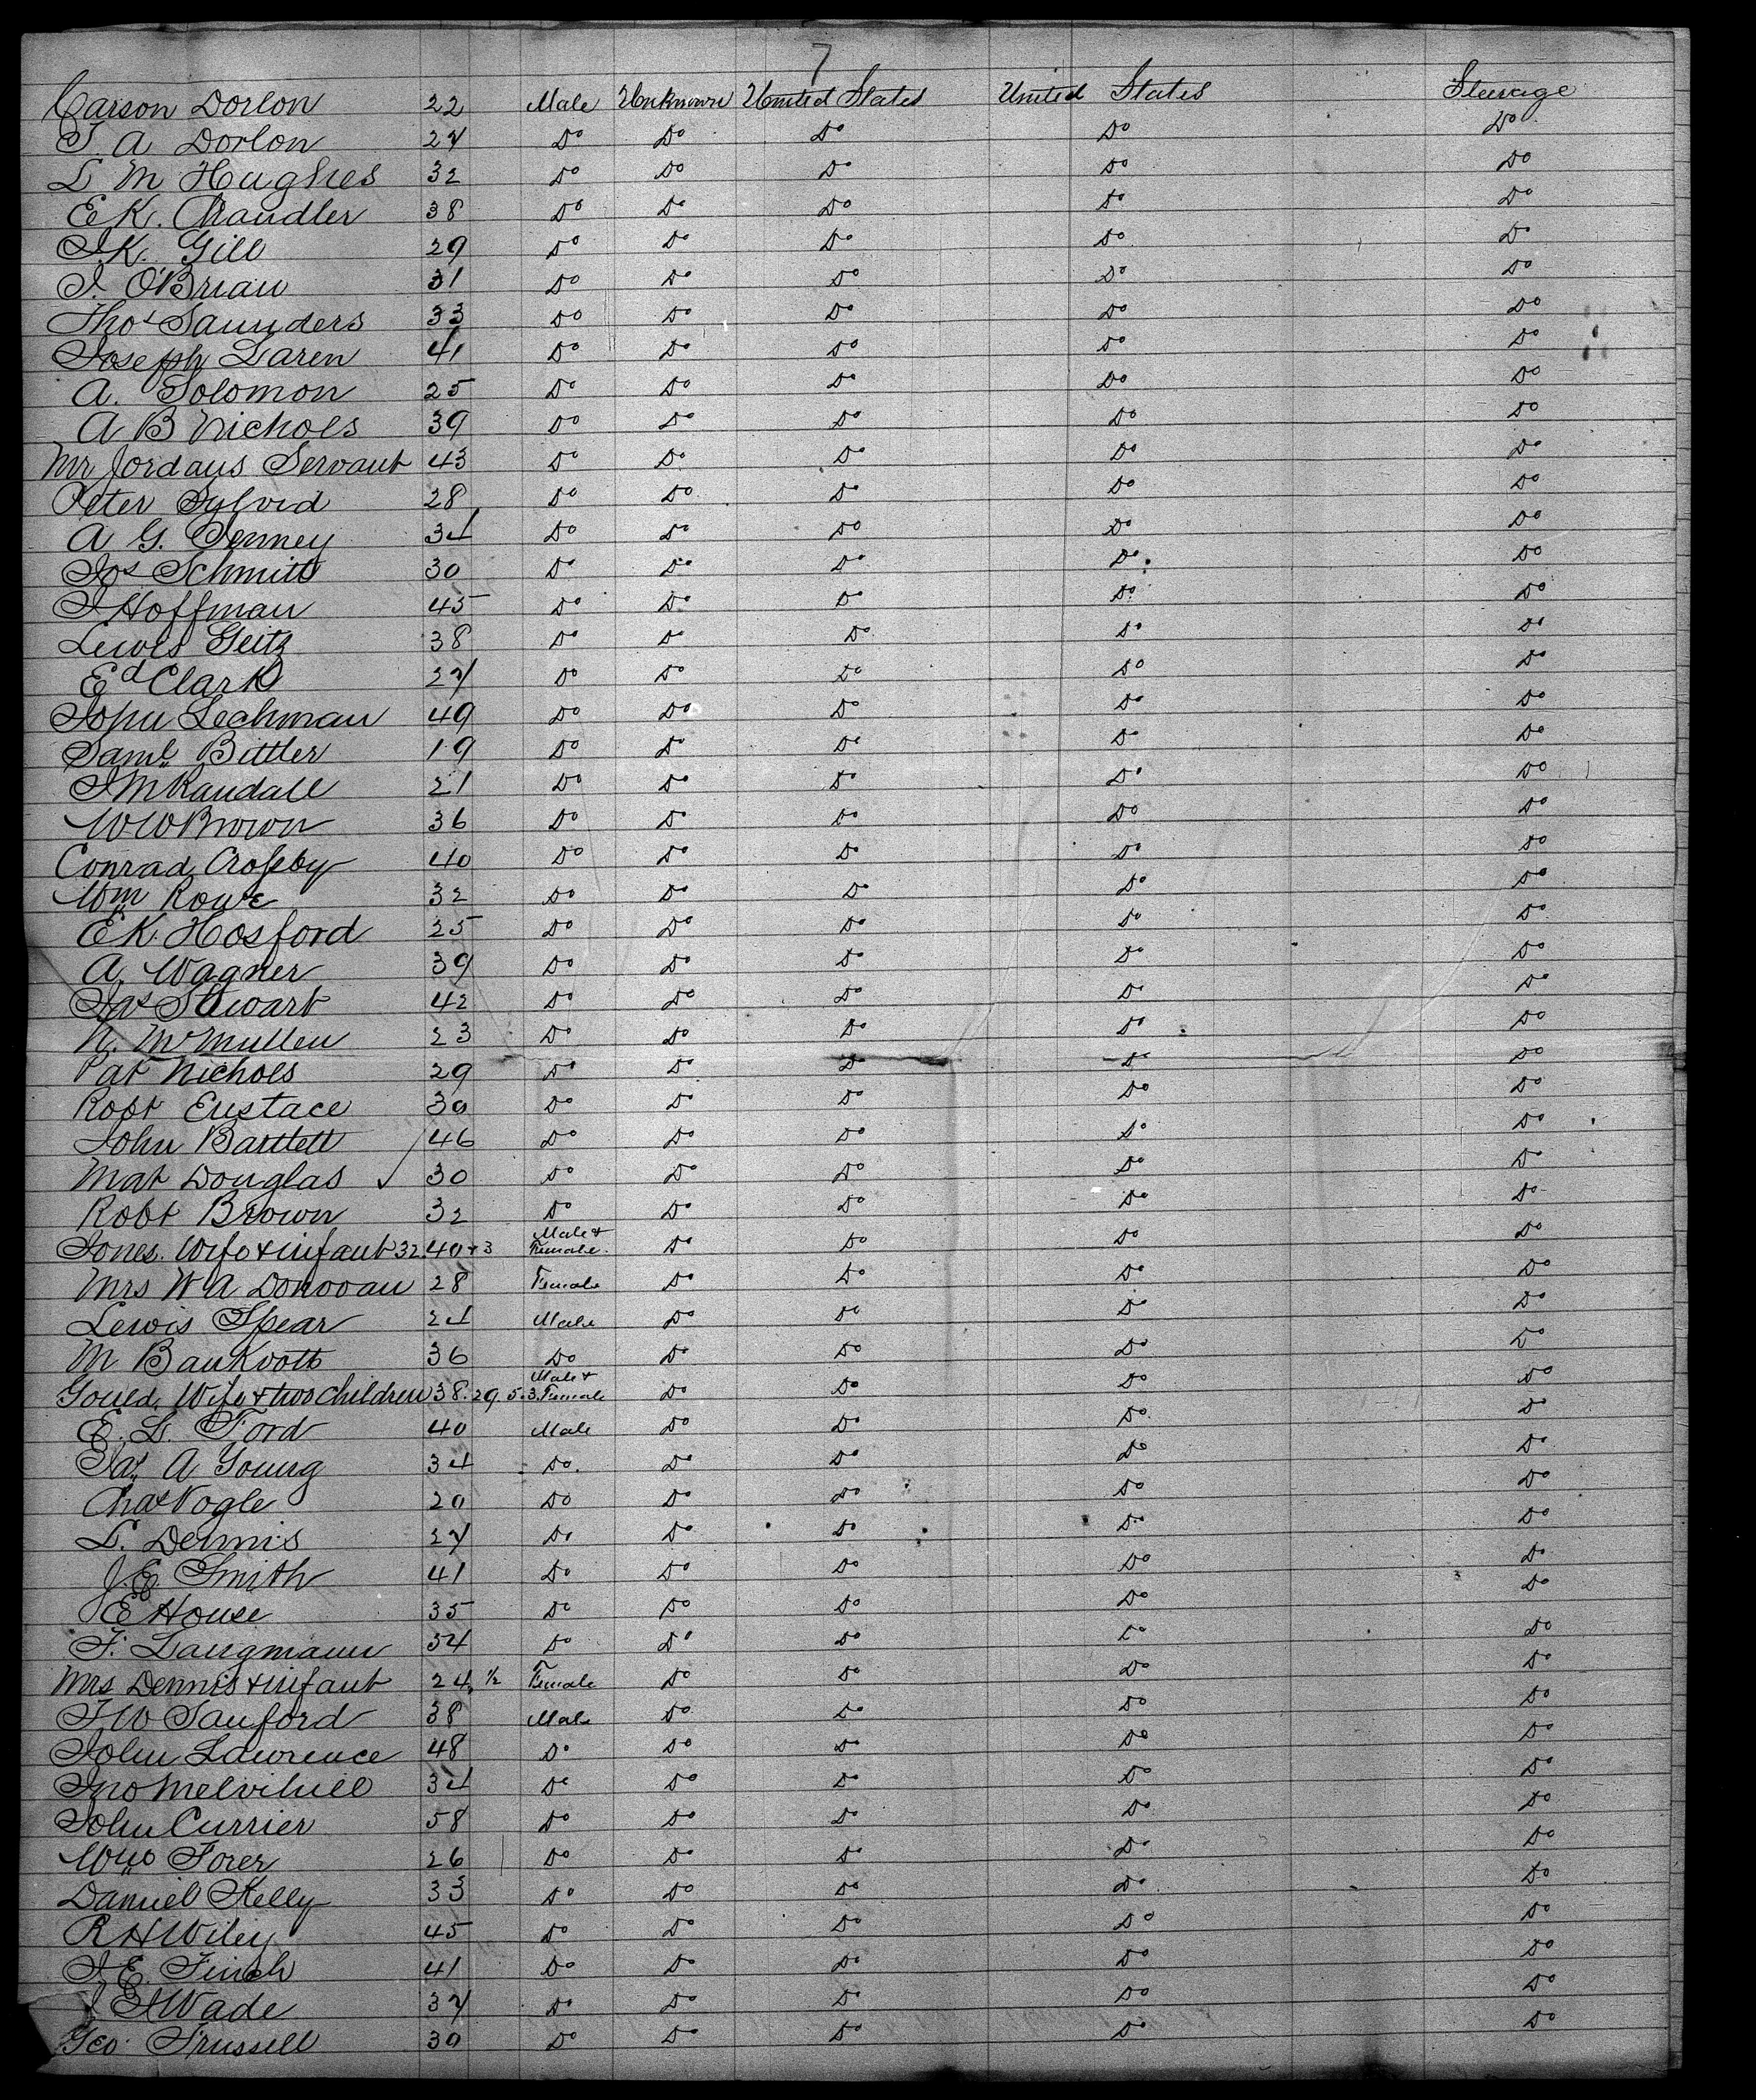 7
Carson Dorlon 22 Male Unknown United States United States Steerage
T. A Dorlon 27 Do Do Do Do Do
L M Hughes 32 Do Do Do Do Do
E K. Chandler 38 Do Do Do Do Do
J. K. Gill 29 Do Do Do Do Do
J. O'Brian 31 Do Do Do Do Do
Thos Saunders 33 Do Do Do Do Do
Joseph Laren 41 Do Do Do Do Do
A. Solomon 25 Do Do Do Do Do
A B Nichols 39 Do Do Do Do Do
Mr Jordans Servant 43 Do Do Do Do Do
Peter Sylvid 28 Do Do Do Do Do
A G. Denney 34 Do Do Do Do Do
Jos Schmitt 30 Do Do Do Do Do
J Hoffman 45 Do Do Do Do Do
Lewis Geitz 38 Do Do Do Do Do
Ed Clark 27 Do Do Do Do Do
John Lechman 49 Do Do Do Do Do
Saml Bittler 19 Do Do Do Do Do
J M Randall 21 Do Do Do Do Do
W W Brown 36 Do Do Do Do Do
Conrad Crossby 40 Do Do Do Do Do
Wm Rowe 32 Do Do Do Do Do
E K. Hosford 25 Do Do Do Do Do
A. Wagner 39 Do Do Do Do Do
Jas Stewart 42 Do Do Do Do Do
N. McMullen 23 Do Do Do Do Do
Pat Nichols 29 Do Do Do Do Do
Robt Eustace 30 Do Do Do Do Do
John Bartlett 46 Do Do Do Do Do
Mat Douglas ✓ 30 Do Do Do Do Do
Robt Brown 32 Do Do Do Do Do
Jones. Wife & infant 32. 40 & 3 Male & Female. Do Do Do Do
Mrs W A Donovan 28 Female Do Do Do Do
Lewis Spear 24 Male Do Do Do Do
M Bankvotts 36 Do Do Do Do Do
Gould, Wife & two Children 38. 29. 5. 3. Male & Female Do Do Do Do
E. L. Ford 40 Male Do Do Do Do
Jas A Young 34 Do. Do Do Do Do
Chas Vogle 20 Do Do Do Do Do
L. Dennis 27 Do Do Do Do Do
J. E. Smith 41 Do Do Do Do Do
J E House 35 Do Do Do Do Do
F. Langmann 54 Do Do Do Do Do
Mrs Dennis & infant 24, 1/2 Female Do Do Do Do
T W Sanford 38 Male Do Do Do Do
John Lawrence 48 Do Do Do Do Do
Jno Melvihill 34 Do Do Do Do Do
John Currier 58 Do Do Do Do Do
Wm Forer 26 Do Do Do Do Do
Daniel Kelly 33 Do Do Do Do Do
R H Wiley 45 Do Do Do Do Do
J E. Finch 41 Do Do Do Do Do
J H Wade 37 Do Do Do Do Do
Geo. Trussell 30 Do Do Do Do Do